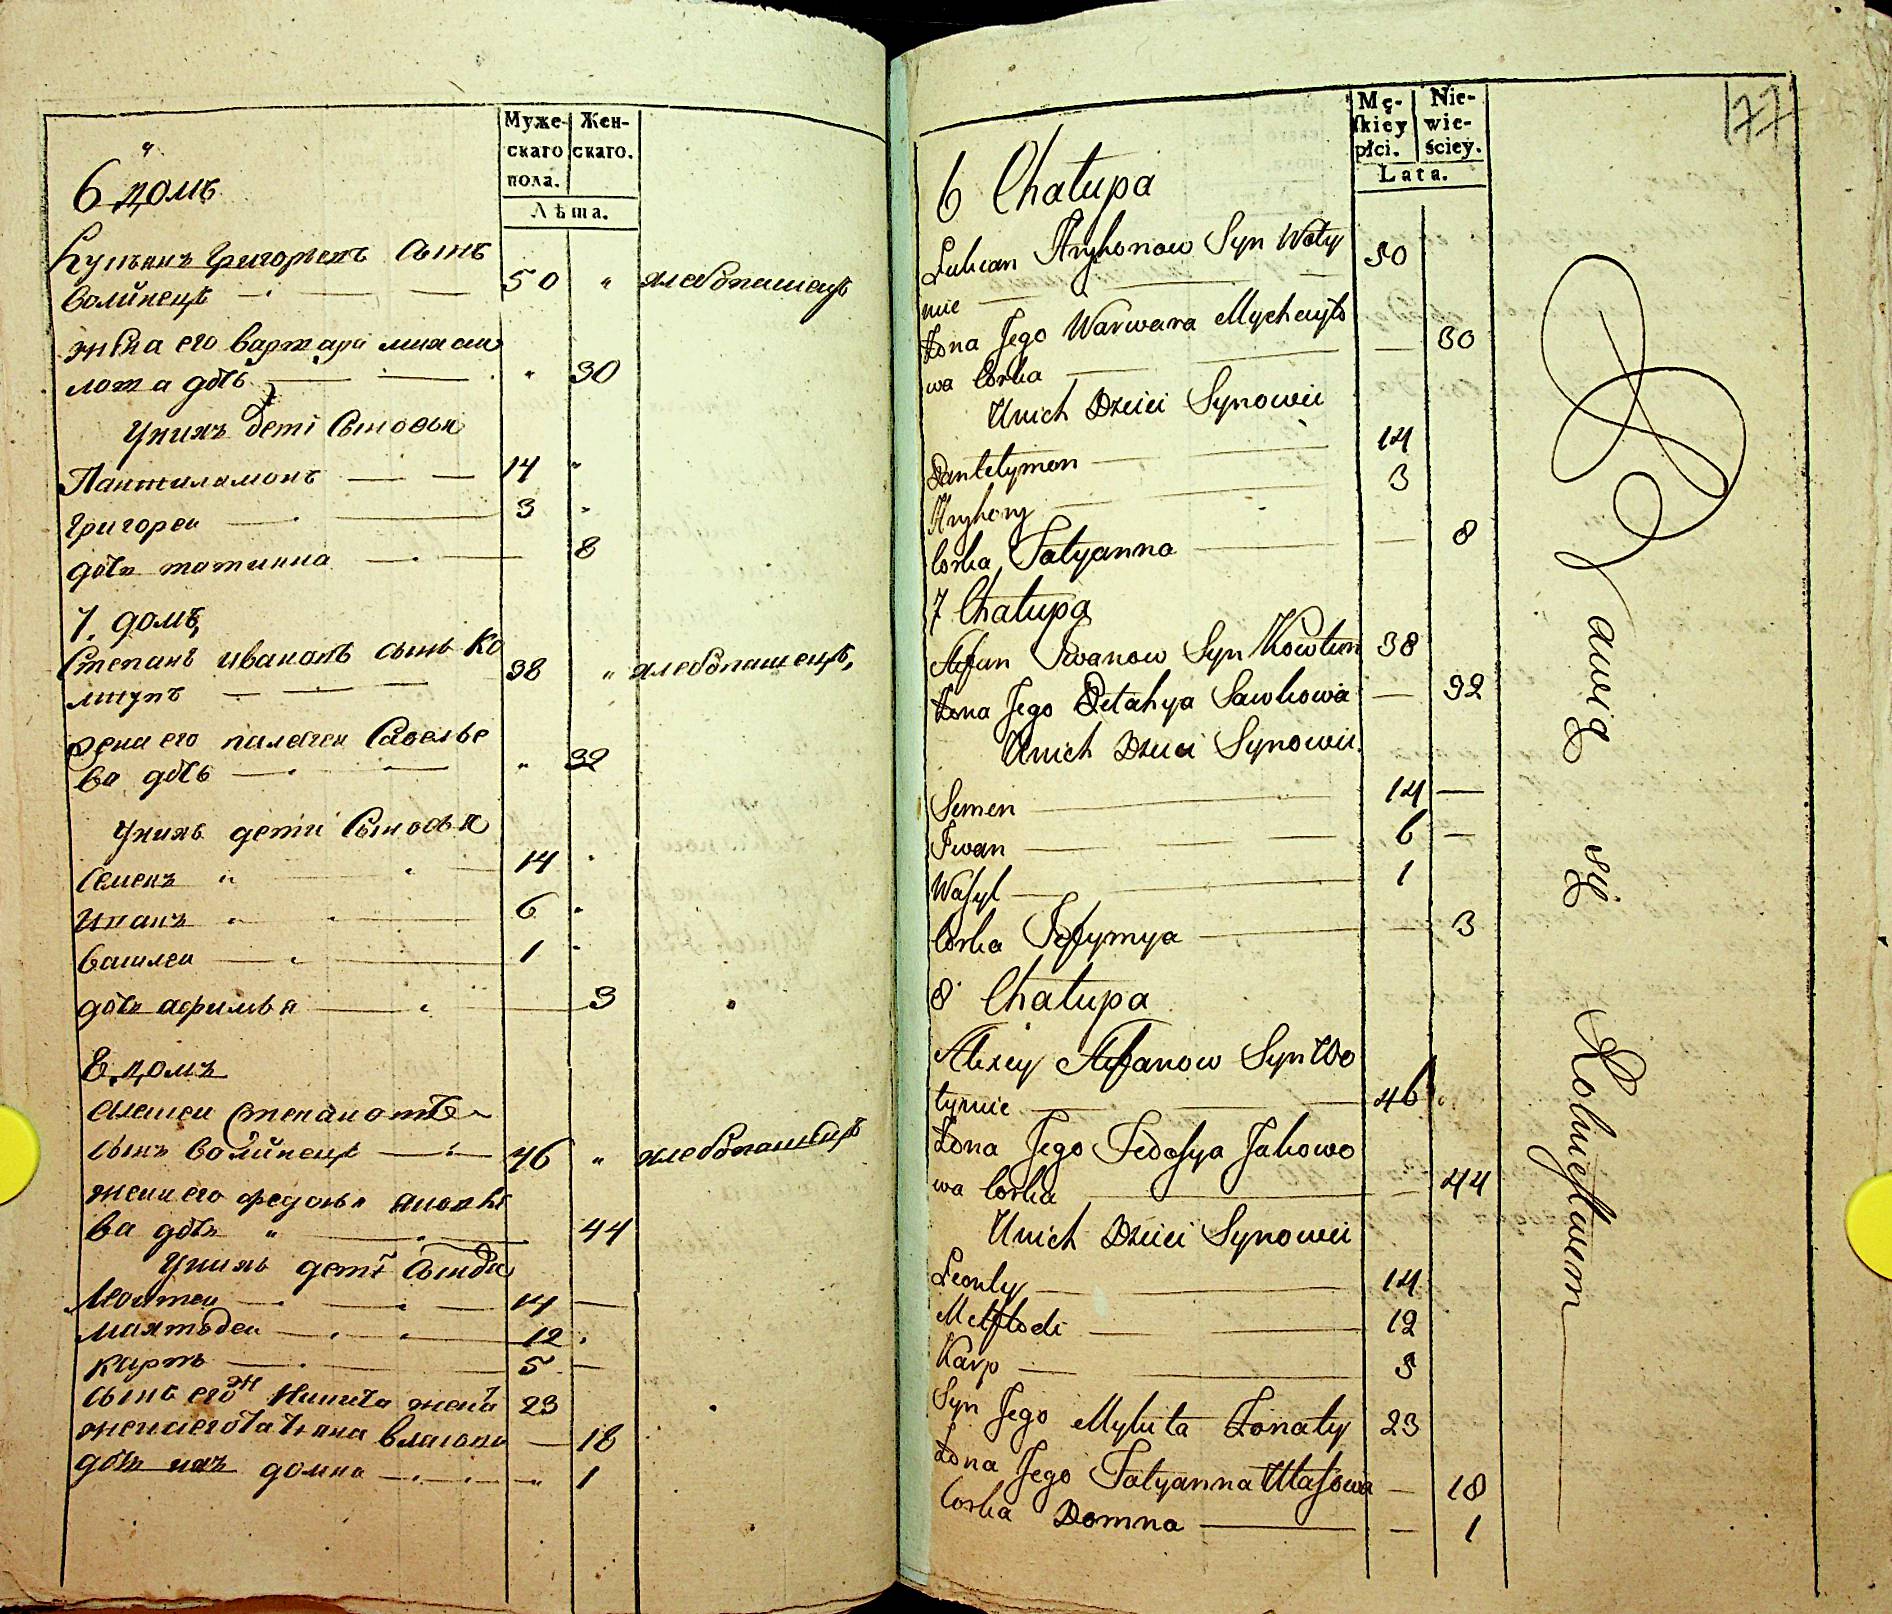 Муже-
скаго
пола.
Жен-
скаго.
Лѣта.
6 домъ
сынъ
Волинецъ 50 хлебопашецъ
жена его варвара михаи
лова дочь 30
У нихъ дети Сыновья
Пантиламонъ 14
Григореи 3
дочь татияна 8
7. домъ
Степанъ ивановъ сынъ Ко
38 хлебопашецъ
жена его палагея Савелье
ва дочь 32
У нихъ дети Сыновья
Семенъ 14
Иванъ 6
Василеи 1
дочь афимья 3
8. домъ
Алексеи Степановъ
сынъ Волинецъ 46 хлебопашецъ
жена его федосья яковле
ва дочь 44
У нихъ дети Сынове
Леонтеи 14
12
карпъ 5
сынъ его Никита женатъ 23
жена его Татьяна власова 18
дочь ихъ домна 1
Mę-
skiey
płci.
Nie-
wie-
ściey.
Lata.
177
6 Chałupa
Lukian Hryhorow Syn Woły
nic 50
Żona Jego Warwara Mychayło
wa Corka 30
Unich Dzieci Synowie
Pantelymon 14
Hryhory 3
Corka Tatyanna 8
7 Chałupa
Stefan Iwanow Syn Kowtun 38
Żona Jego Pelahya Sawkowa 32
Unich Dzieci Synowie
Semen 14
Iwan 6
Wasyl 1
Corka Jefymya 3
8 Chałupa
Alexey Stefanow Syn Wo
łynic 46
Żona Jego Fedosya Jakowo
wa Corka 44
Unich Dzieci Synowie
Leonty 14
Meftodi 12
Karp 5
Syn Jego Mykita Żonaty 23
Żona Jego Tatyanna Ułasowa 18
Corka Domna 1
awią
się
Rolnictwem